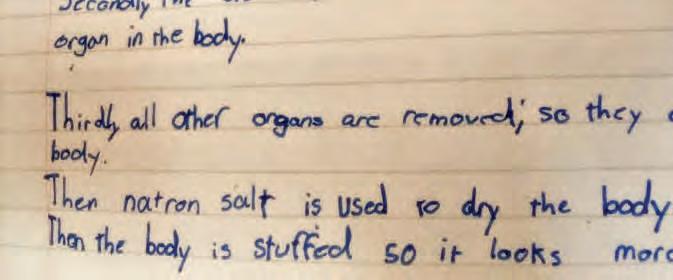 Secondly the
organ in the body.
Thirdly all other organs are removed; so they
body.
Then natron salt is used to dry the body
Then the body is stuffed so it looks more